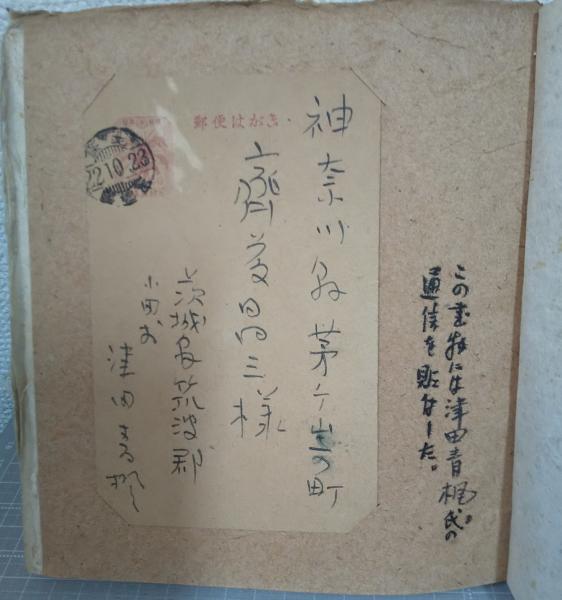 この書物には津田青楓氏の
通信を貼付した。
郵便はがき
神奈川県茅ケ崎町
齋藤昌三様
茨城県筑波郡
小田村
津田青楓
22.10.23